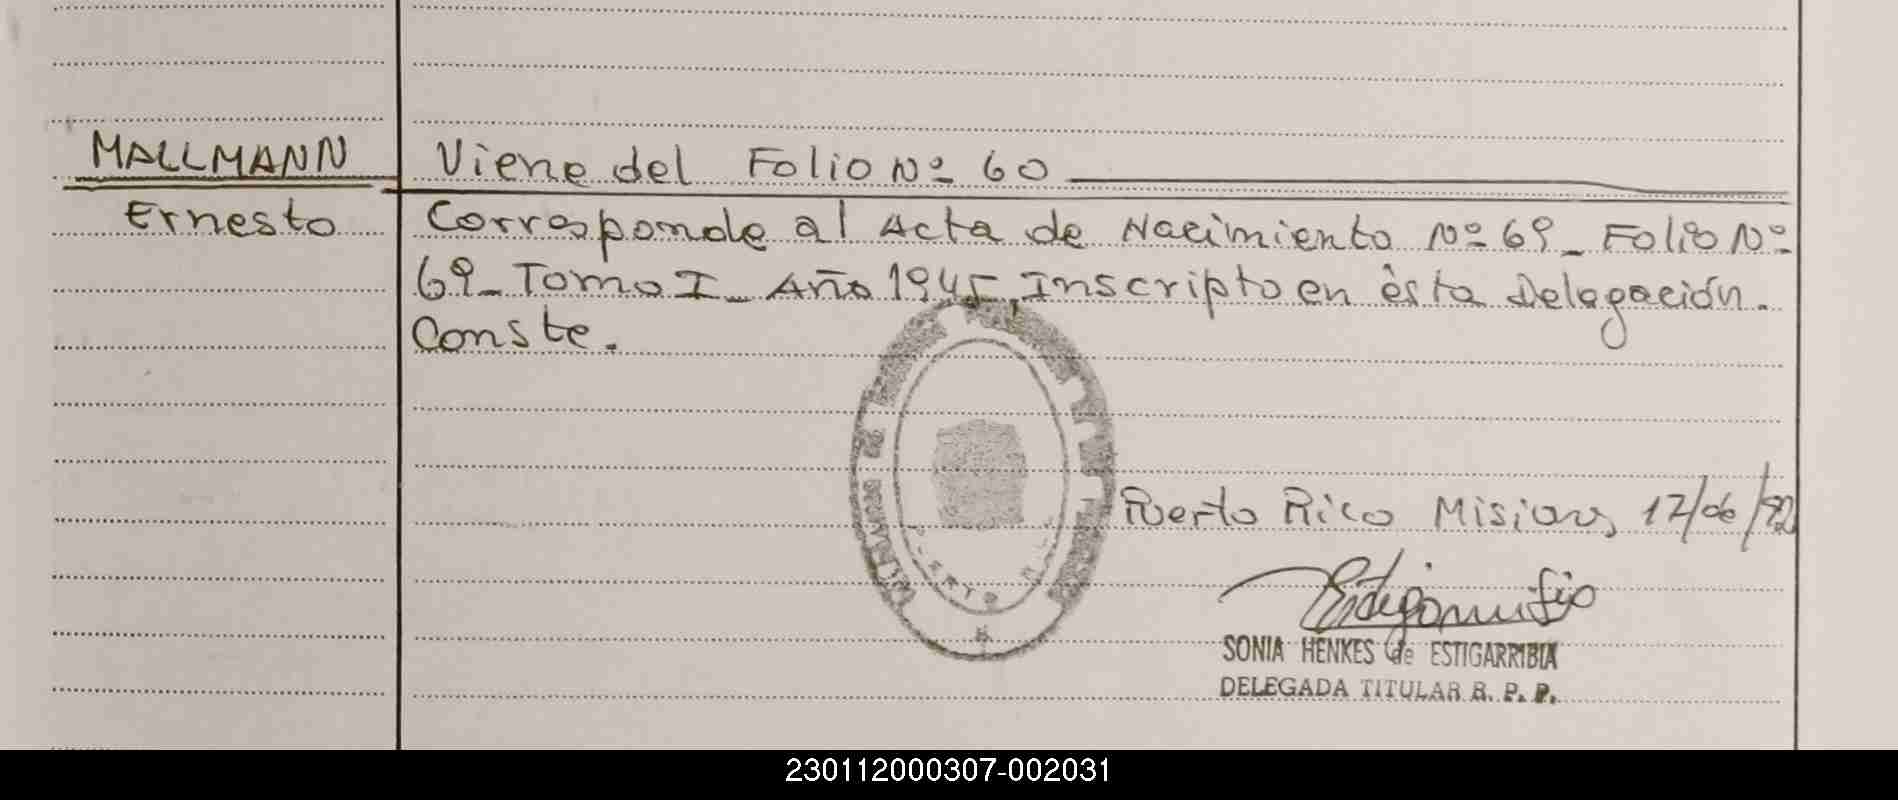 MALLMANN Viene del Folio Nº 60
Ernesto Corresponde al Acta de Nacimiento Nº 69_ Folio Nº
69_ Tomo I_ Año 1945, Inscripto en èsta Delegación.
Conste.
Puerto Rico Misiones, 17/06/92
SONIA HENKES de ESTIGARRIBIA
DELEGADA TITULAR R. P. P.
230112000307-002031